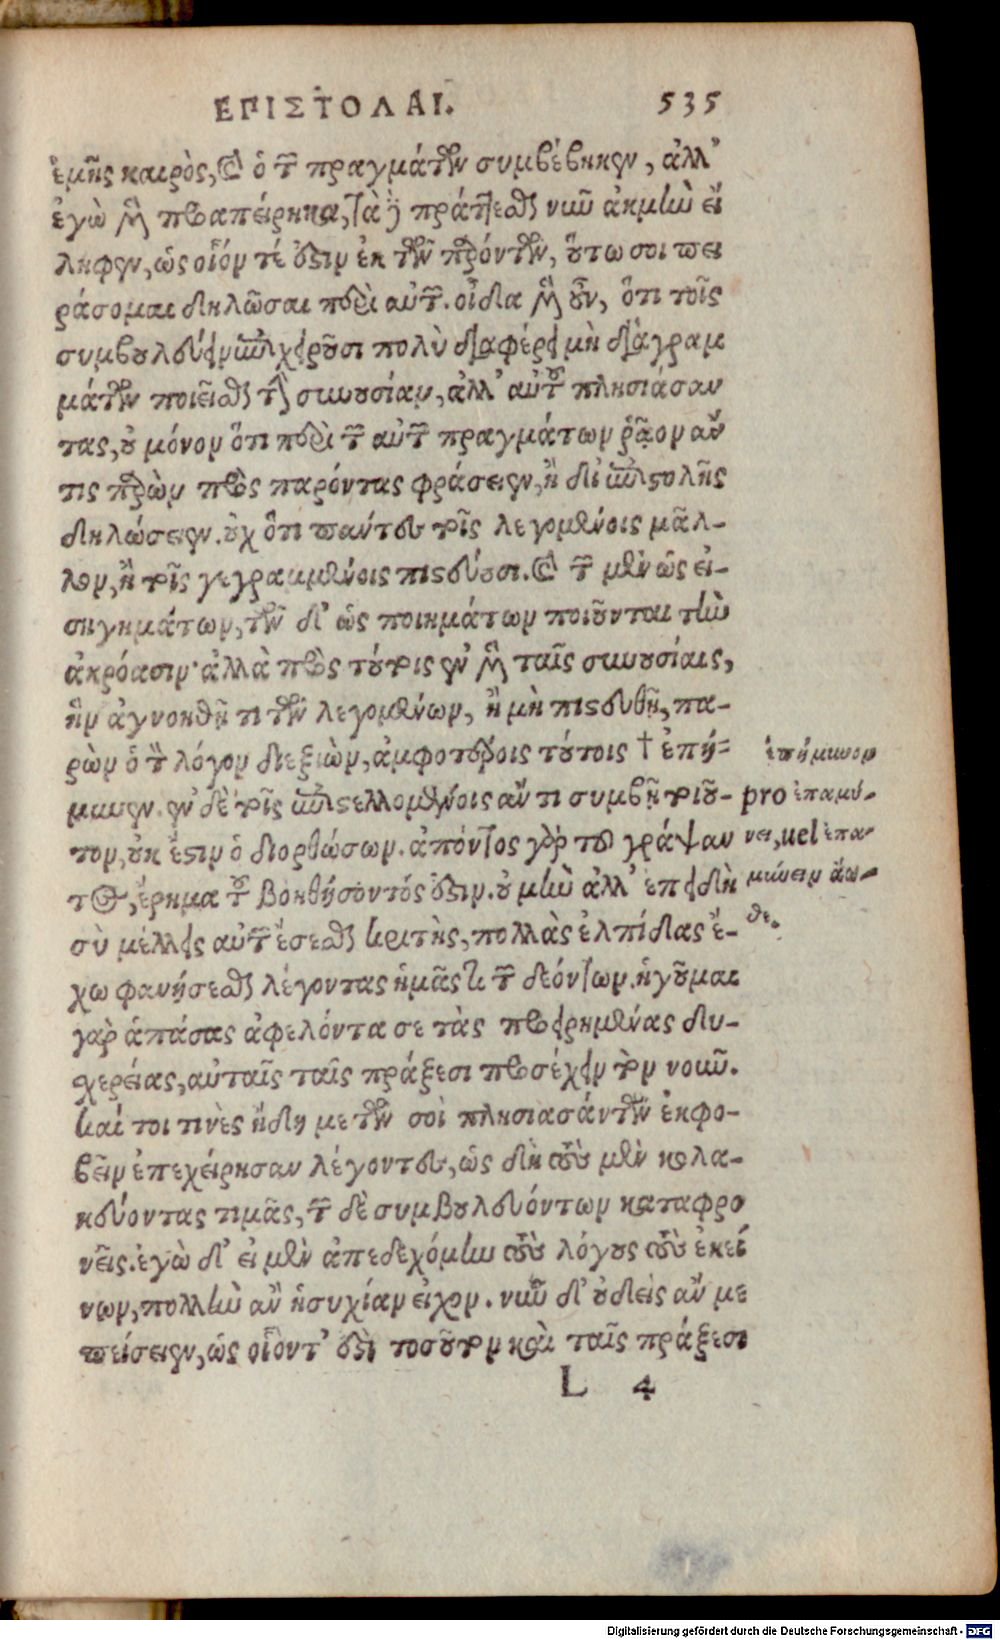 ΕΠΙΣΤΟΛΑΙ. 535
ἐμῆς καιρὸς, καὶ ὁ τῶν πραγμάτων συμβέβηκεν, ἀλλ’
ἐγὼ μὲν προαπείρηκα, τὰ δὲ πράττεσθαι νῦν ἀκμὴν εἴ
ληφεν, ὡς οἷόν τέ ἐστιν ἐκ τῶν παρόντων, οὕτω σοι πει
ράσομαι δηλῶσαι περὶ αὐτῶν. οἶδα μὲν οὖν, ὅτι τοῖς
συμβουλεύειν ἐπιχειροῦσι πολὺ διαφέρει μὴ διὰ γραμ
μάτων ποιεῖσθαι τὴν συνουσίαν, ἀλλ’ αὐτοὺς πλησιάσαν
τας, οὐ μόνον ὅτι περὶ τῶν αὐτῶν πραγμάτων ῥᾷον ἄν
τις παρὼν πρὸς παρόντας φράσειεν, ἢ δι’ ἐπιστολῆς
δηλώσειεν. οὐχ ὅτι πάντες τοῖς λεγομένοις μᾶλ-
λον, ἢ τοῖς γεγραμμένοις πιστεύουσι. καὶ τῶν μὲν ὡς εἰ-
σηγημάτων, τῶν δ’ ὡς ποιημάτων ποιοῦνται τὴν
ἀκρόασιν· ἀλλὰ πρὸς τούτοις ἐν μὲν ταῖς συνουσίαις,
ἢν ἀγνοηθῇ τι τῶν λεγομένων, ἢ μὴ πιστευθῇ, πα-
ρὼν ὁ τὸν λόγον διεξιὼν, ἀμφοτέροις τούτοις † ἐπή-
μυνεν. ἐν δὲ τοῖς ἐπιστελλομένοις ἄν τι συμβῇ τοιοῦ-
τον, οὐκ ἔστιν ὁ διορθώσων. ἀπόντος γὰρ τοῦ γράψαν
τος, ἔρημα τοῦ βοηθήσοντός ἐστιν. οὐ μὴν ἀλλ’ ἐπειδὴ
σὺ μέλλεις αὐτῶν ἔσεσθαι κριτὴς, πολλὰς ἐλπίδας ἔ-
χω φανήσεσθαι λέγοντας ἡμᾶς τι τῶν δεόντων. ἡγοῦμαι
γὰρ ἁπάσας ἀφελόντα σε τὰς προειρημένας δυ-
χερείας, αὐταῖς ταῖς πράξεσι προσέχειν τὸν νοῦν.
καί τοι τινὲς ἤδη με τῶν σοὶ πλησιασάντων ἐκφο-
βεῖν ἐπεχείρησαν λέγοντες, ὡς δὴ τοὺς μὲν κολα-
κεύοντας τιμᾷς, τῶν δὲ συμβουλευόντων καταφρο
νεῖς. ἐγὼ δ’ εἰ μὲν ἀπεδεχόμην τοὺς λόγους τοὺς ἐκεί
νων, πολλὴν ἂν ἡσυχίαν εἶχον. νῦν δ’ οὐδεὶς ἄν με
πείσειεν, ὡς οἷόντ’ ἐστὶ τοσοῦτον καὶ ταῖς πράξεσι
L 4
ἐπήμυνον
pro ἐπαμύ-
νει, uel ἐπα-
μύνειν ἄω-
θε.
Digitalisierung gefördert durch die Deutsche Forschungsgemeinschaft - DFG